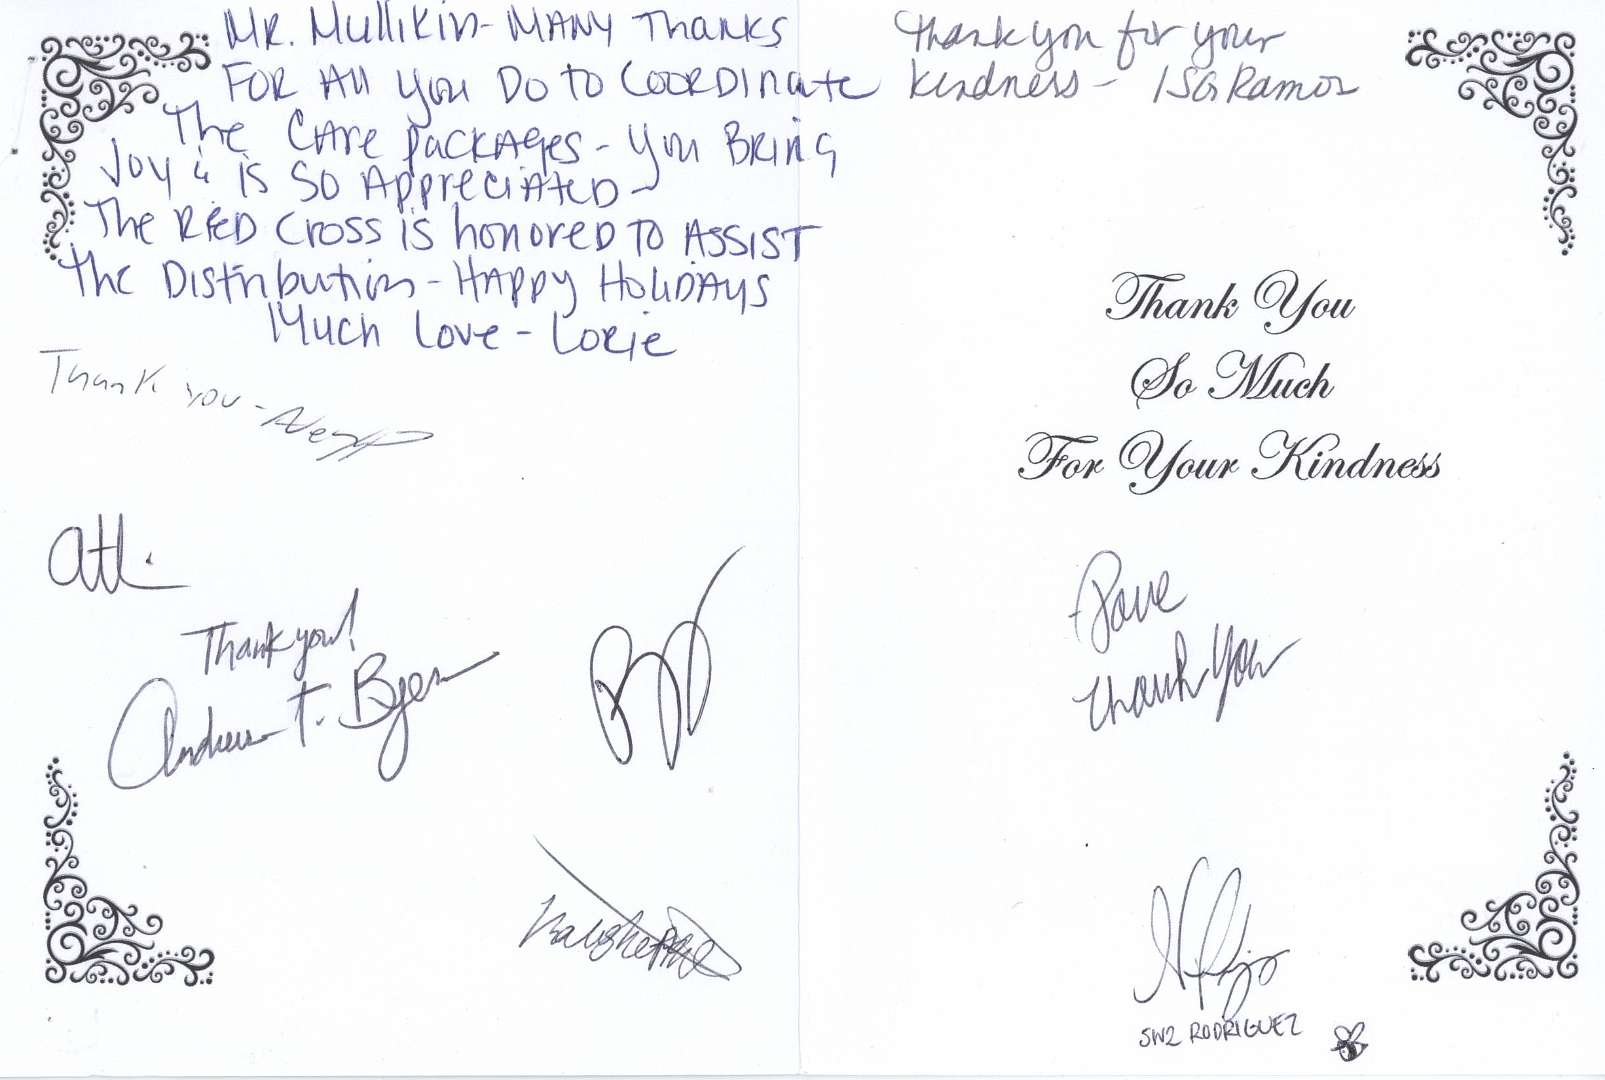 MR. Mullikin - MANY Thanks
FOR All you DO to COORDinate
The CAre packAges - you BRinG
Joy & is SO AppreciAteD -
The RED Cross is honoreD TO ASSIST
the Distribution - HAppy HoliDAys
Much Love - Lorie
Thank you -
Thank you!
Andrew T. Byers
Thank you for your
kindness - 1SG Ramos
Thank You
So Much
For Your Kindness
Dave
Thank You
SW2 RODRIGUEZ